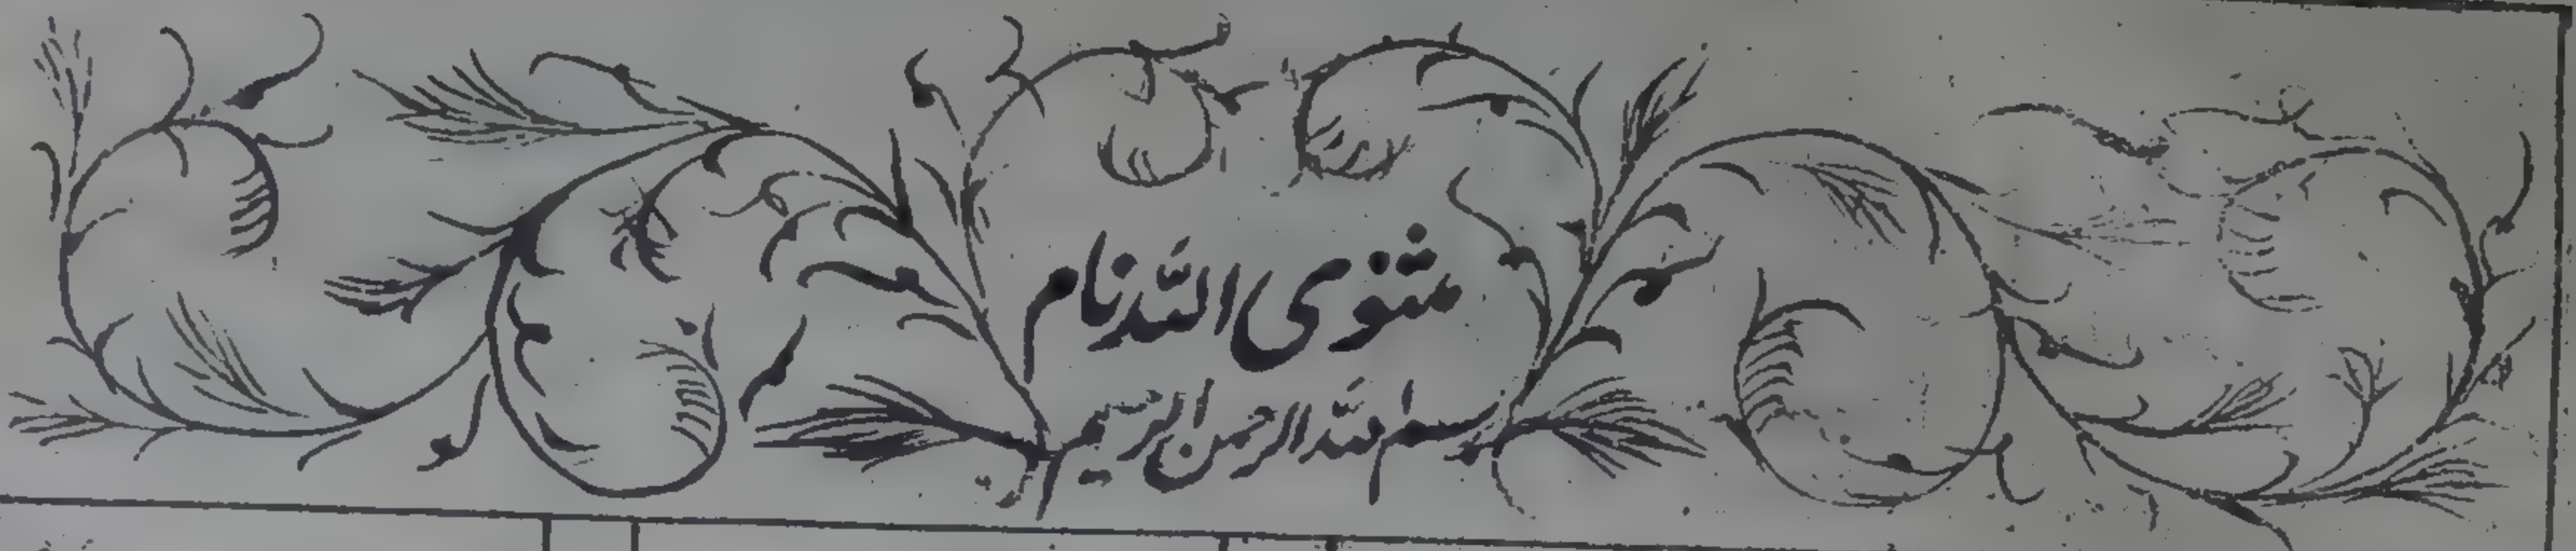 مثنوی اللہ نام
بسم اللہ الرحمن الرحیم